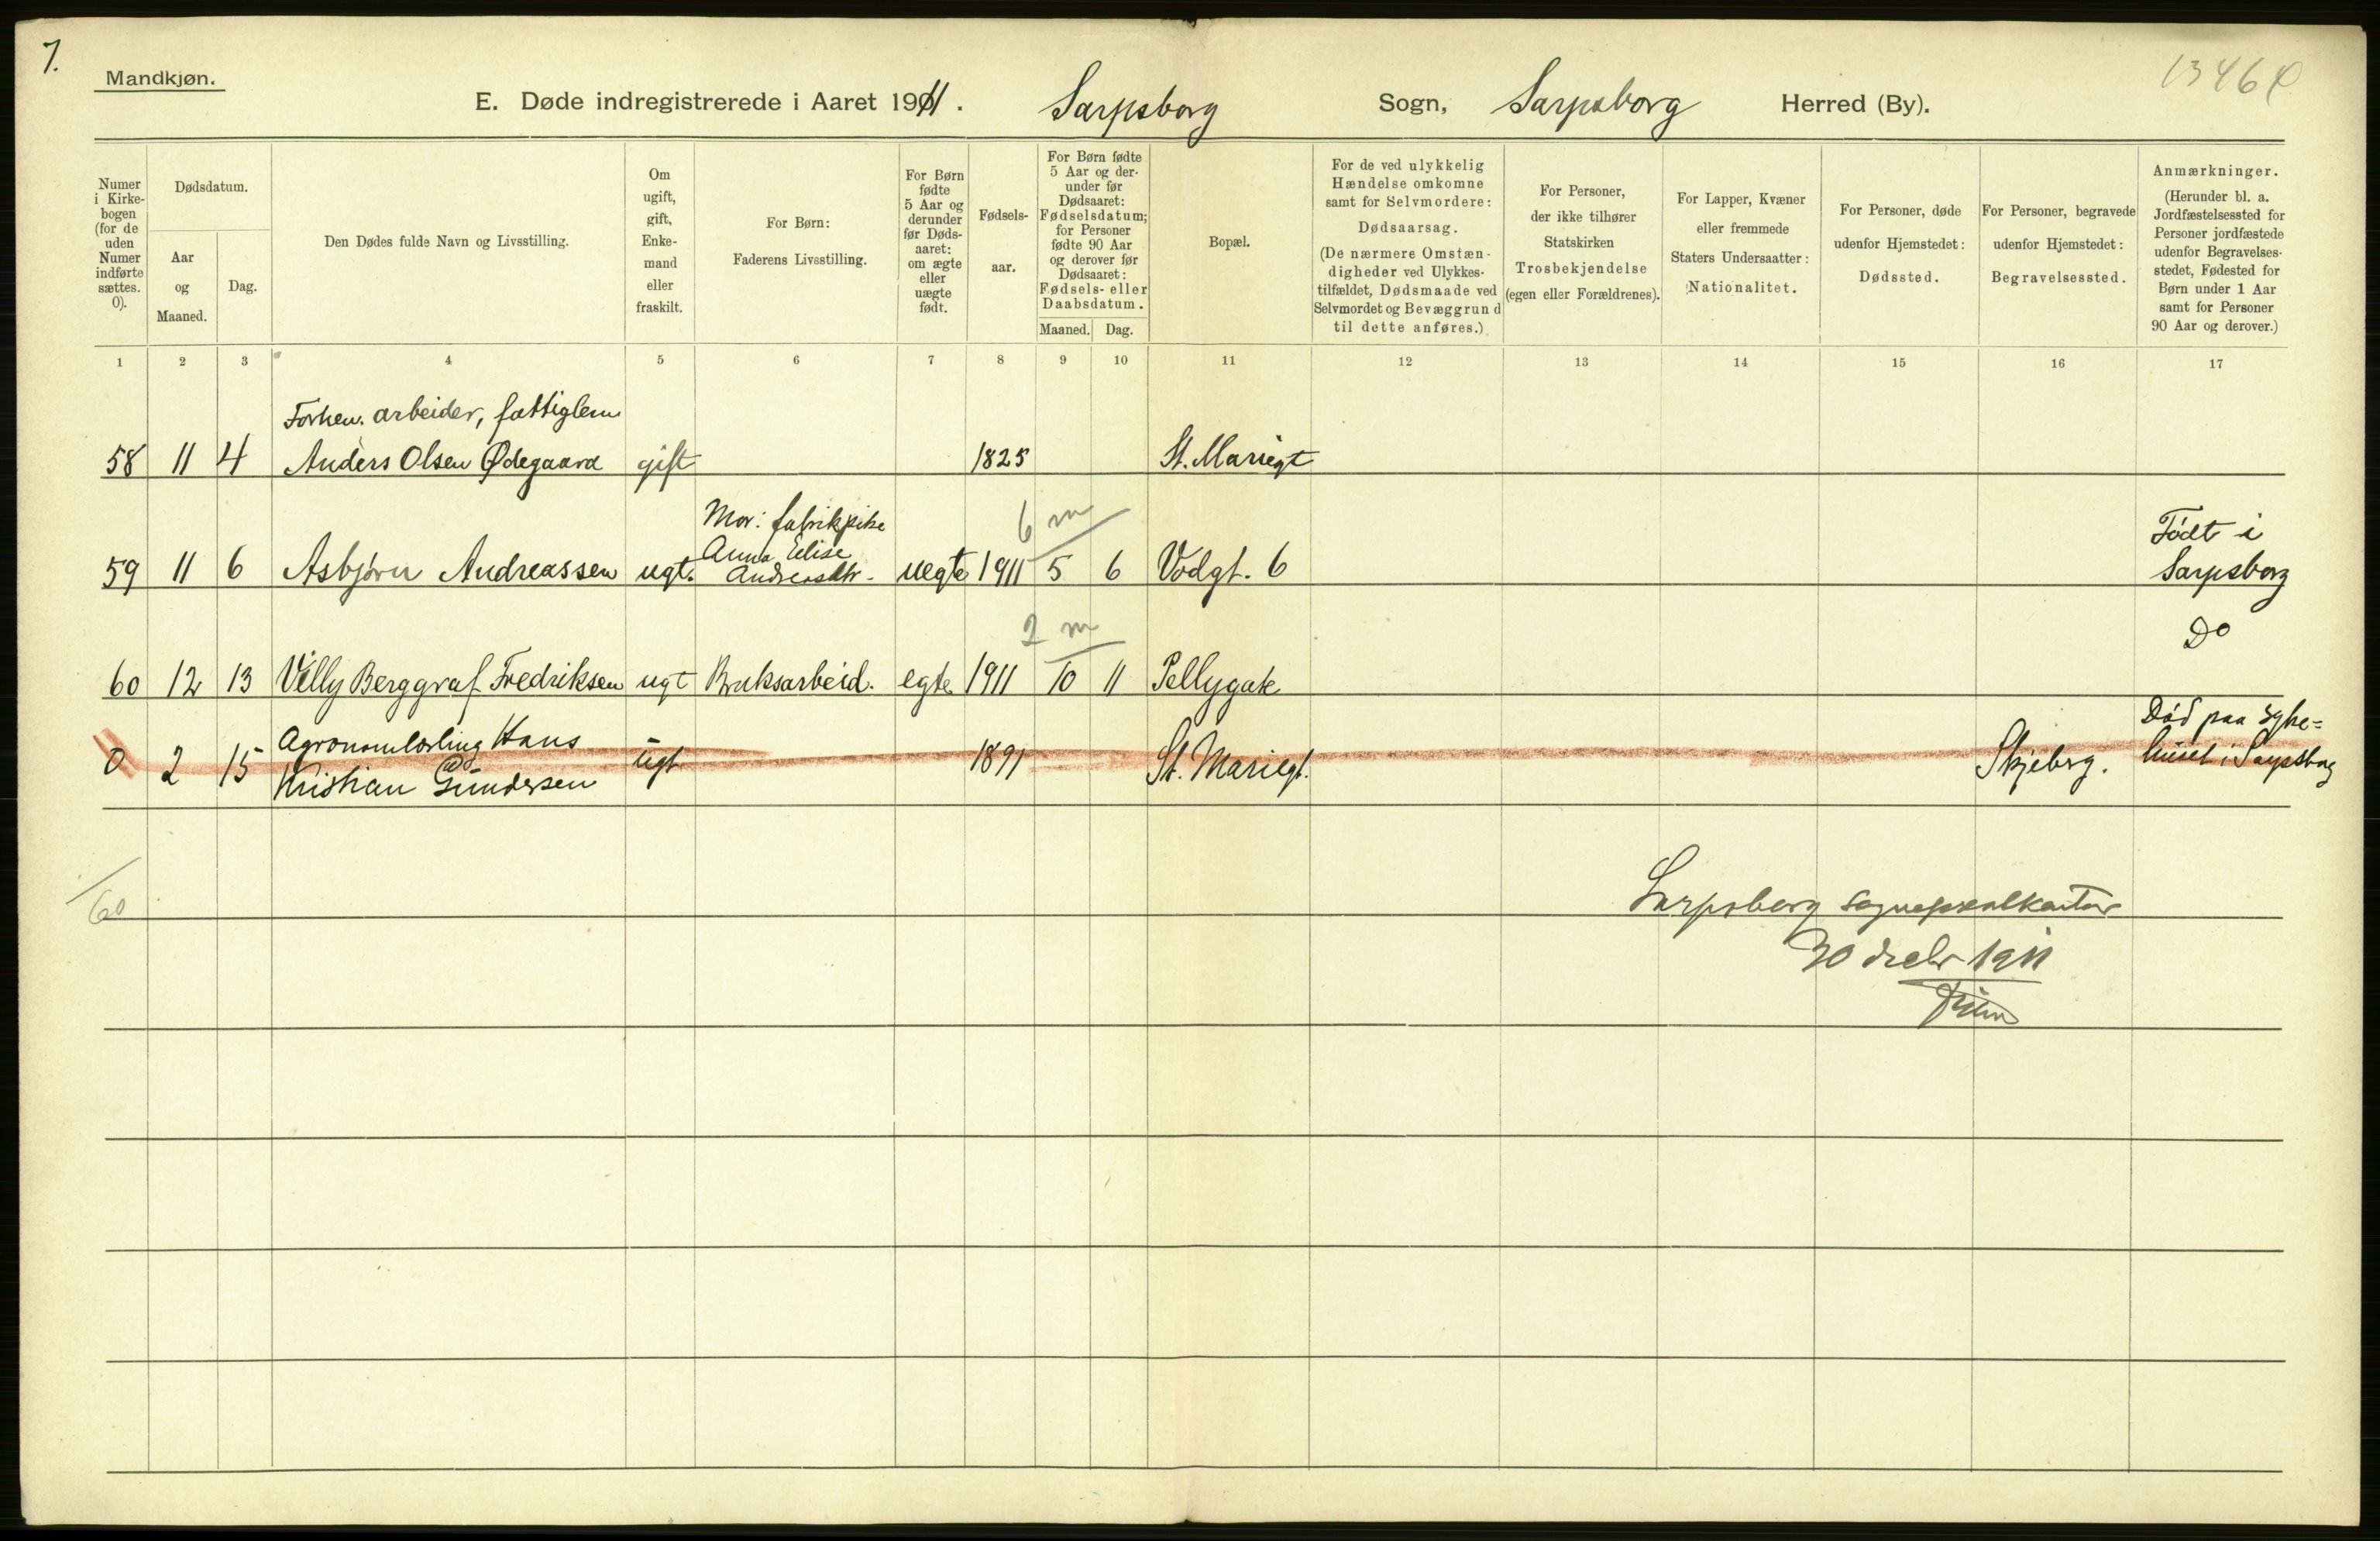 7.
Mandkjøn.
E. Døde indregistrerede i Aaret 1911. Sarpsborg Sogn, Sarpsborg Herred (By).
Numer
i Kirke-
bogen
(for de
uden
Numer
indførte
sættes.
0).
Dødsdatum.
Aar
og
Maaned.
Dag.
Den Dødes fulde Navn og Livsstilling.
Om
ugift,
gift,
Enke-
mand
eller
fraskilt.
For Børn:
Faderens Livsstilling.
For Børn
fødte
5 Aar og
derunder
før Døds-
aaret:
om ægte
eller
uægte
født.
Fødsels-
aar.
For Børn fødte
5 Aar og der-
under før
Dødsaaret:
Fødselsdatum;
for Personer
fødte 90 Aar
og derover før
Dødsaaret:
Fødsels- eller
Daabsdatum.
Maaned. Dag.
Bopæl.
For de ved ulykkelig
Hændelse omkomne
samt for Selvmordere:
Dødsaarsag.
(De nærmere Omstæn-
digheder ved Ulykkes-
tilfældet, Dødsmaade ved
Selvmordet og Bevæggrund
til dette anføres.)
For Personer,
der ikke tilhører
Statskirken
Trosbekjendelse
(egen eller Forældrenes).
For Lapper, Kvæner
eller fremmede
Staters Undersaatter:
Nationalitet.
For Personer, døde
udenfor Hjemstedet:
Dødssted.
For Personer, begravede
udenfor Hjemstedet:
Begravelsessted.
Anmærkninger.
(Herunder bl. a.
Jordfæstelsessted for
Personer jordfæstede
udenfor Begravelses-
stedet, Fødested for
Børn under 1 Aar
samt for Personer
90 Aar og derover.)
1 2 3 4 5 6 7 8 9 10 11 12 13 14 15 16 17
Forhen. arbeider, fattiglem
58 11 4 Anders Olsen Ødegaard gift 1825 St. Mariegt
Mor: fabrikpike
Anna Elise
6 m
Født i
59 11 6 Asbjørn Andreassen ugt. Andreasdtr. uegte 1911 5 6 Vodgt. 6 Sarpsborg
2 m
Do
60 12 13 Villy Berggraf Fredriksen ugt Bruksarbeid. egte 1911 10 11 Pellygate
Agronomlærling Hans
Død paa syke=
0 2 15 Kristian Gundersen ugt 1891 St. Mariegt. Skjeberg. huset i Sarpsborg
60
Sarpsborg sogneprestkontor
30 decbr 1911